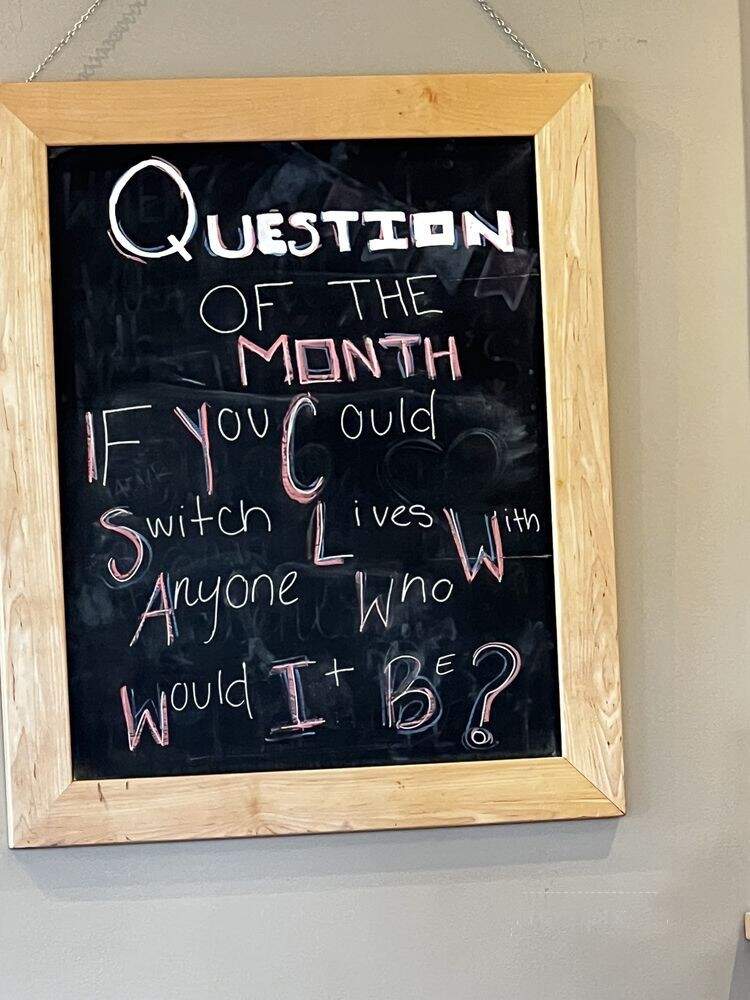 QUESTION
OF THE
MONTH
IF You Could
Switch Lives With
Anyone Who
Would It BE?